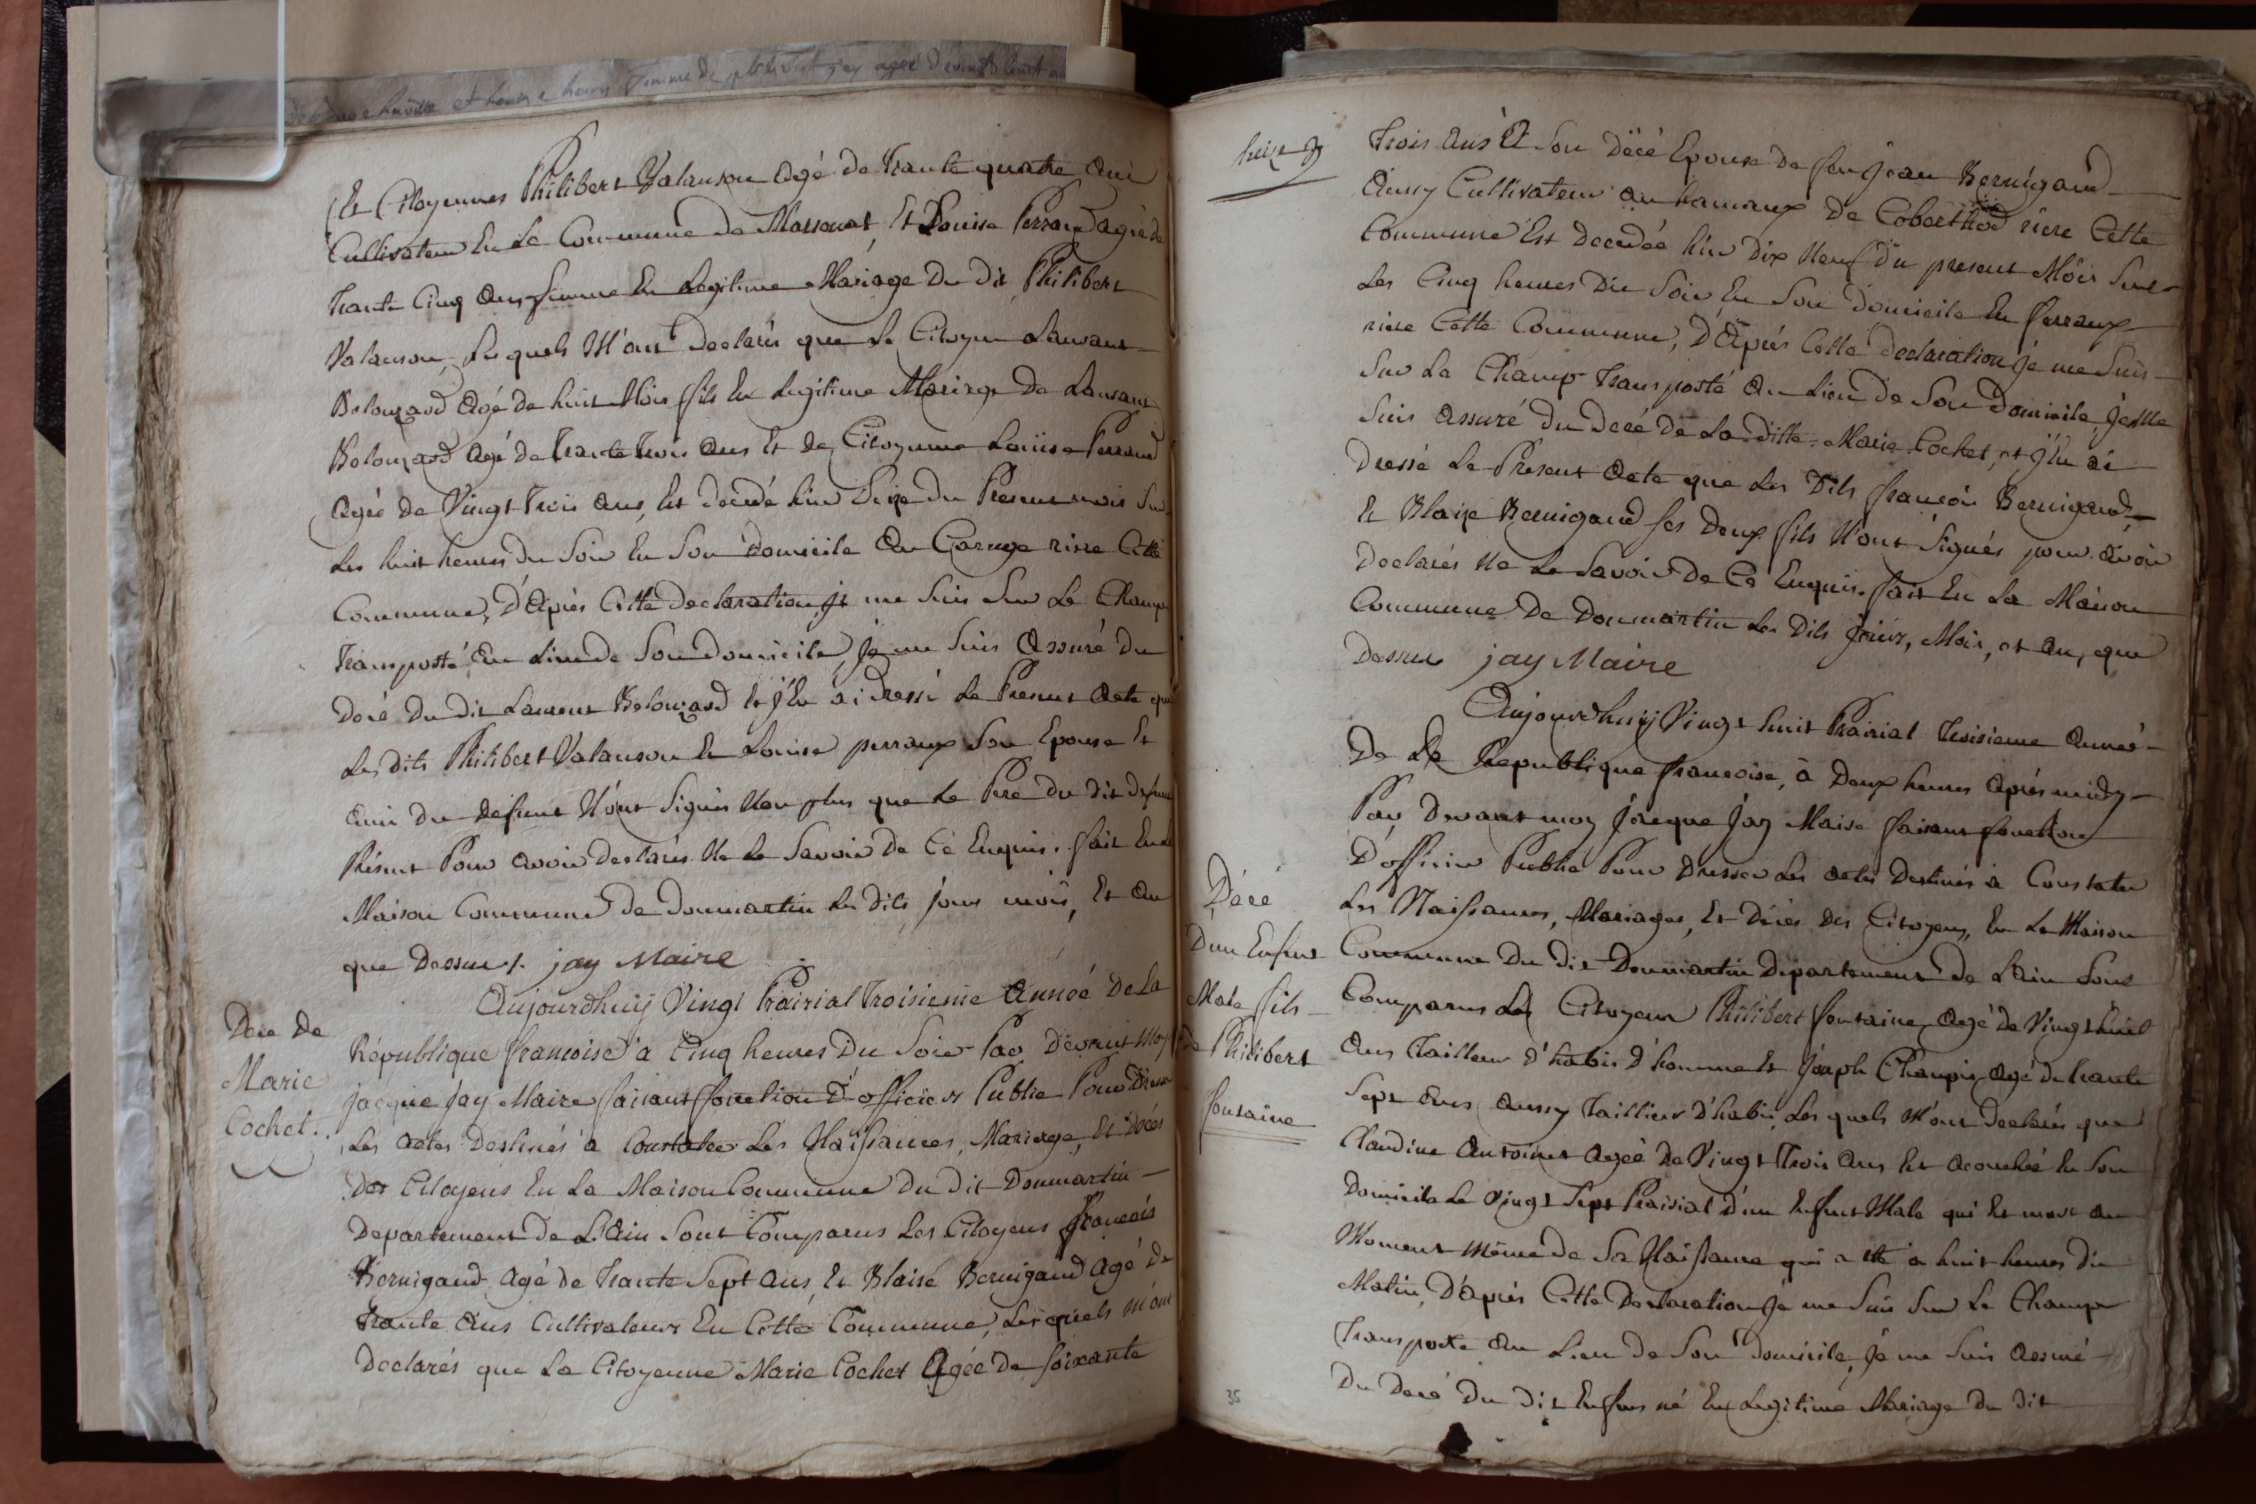 Et Citoyennes Philibert Valanson agé de trante quatre ans
Cultivateur En La Commune de Massonat, Et Louise Perraud agée de
trante Cinq ans femme En Legitime Mariage Du Dit Philibert
Valanson, Les quels M'ont declarés que Le Citoyen Laurant
Belouzard agé de huit Mois fils En Legitime Mariage De Laurant
Belouzard agé de trante trois ans Et de Citoyenne Louise Perraud
agée de Vingt trois ans, Est decedé hier Seize du Present mois Sur
Les huit heures du Soir En Son domicile Au Carruge riere Cette
Commune, D'Apres Cette declaration je me Suis Sur Le Champ
transporté Au Lieu de Son domicile, je me Suis assuré Du
Decé Du dit Laurent Belouzard Et j'En ai dressé Le Present Acte que
Les dits Philibert Valanson Et Louise perraux Son Epouse Et
ami du defunt N'ont Signés Non plus que Le Pere du dit defunt
Présent Pour avoir declarés Ne Le Savoir De Cé Enquis. fait En La
Maison Commune de Donmartin Les dits jours mois, Et an
que Dessus. jay Maire
Dece De
Marie
Cochet.
Aujourdhuij Vingt Prairial troisieme Année De La
République francoise à Cinq heures Du Soir Par Devant Moy
jacque jay Maire faisant fonction D'officier Public Pour Dresser
Les actes Destinés à Constater Les Naissances, Mariage, Et Décés
Des Citoyens En La Maison Commune Du dit Donmartin
Departement De L'Ain Sont Comparus Les Citoyens francois
Bernigaud Agé de trante Sept ans, Et Blaise Bernigaud Agé De
trante Ans Cultivateurs En Cette Commune, Les quels m'ont
Declarés que La Citoyenne Marie Cochet Agée De soixante
trois Ans Et Son Décé Epouse De feu jean Bernigaud
Aussy Cultivateur au hamaux De Coberthod riere Cette
Commune Est decedée hier Dix Neuf du present Mois Sur
Les Cinq heures Du Soir En Son Domicile En perraux
riere Cette Commune, D'Apres Cette declaration je me Suis
Sur Le Champ transporté Au Lieu De Son Domicile, je Me
Suis assuré Du Decé De La ditte Marie Cochet, et j'En ai
Dressé Le Present Acte que Les Dits francois Bernigaud
Et Blaize Bernigaud Ses Deux fils N'ont Signés pour avoir
Declarés Ne Le Savoir De Ce Enquis. fait En La Maison
Commune De Donmartin Les Dits jours, Mois, et An, que
Dessus jay Maire
Aujourdhuij Vingt huit Prairial troisieme Année
De La Republique francoise, à Deux heures Aprés midy
Par Devant moy jacque jay Maire faisant fonction
D'officier Public Pour Dresser Les actes Destinés à Constater
Les Naissances, Mariages, Et Décés Des Citoyens, En La Maison
Décé
D'un Enfant
Male fils
De Philibert
fontaine
Commune Du dit Donmartin Departement De L'Ain Sont
Comparus Les Citoyens Philibert fontaine, Agé de Vingt huit
Ans tailleur d'habis d'homme Et joseph Champin, Agé de trante
Sept Ans Aussy taillieur d'habis, Les quels M'ont Declarés que
Claudine Antoinet Agée De Vingt trois Ans Est acouchée En Son
Domicile Le Vingt Sept Prairial d'un Enfant Male qui Est mort Au
Moment Même de Sa Naissance qui a été à huit heures Du
Matin, D'aprés Cette Declaration je me Suis Sur Le Champ
transporté Au Lieu De Son domicile, je me Suis Assuré
Du Decé Du Dit Enfant né En Legitime Mariage Du Dit
35